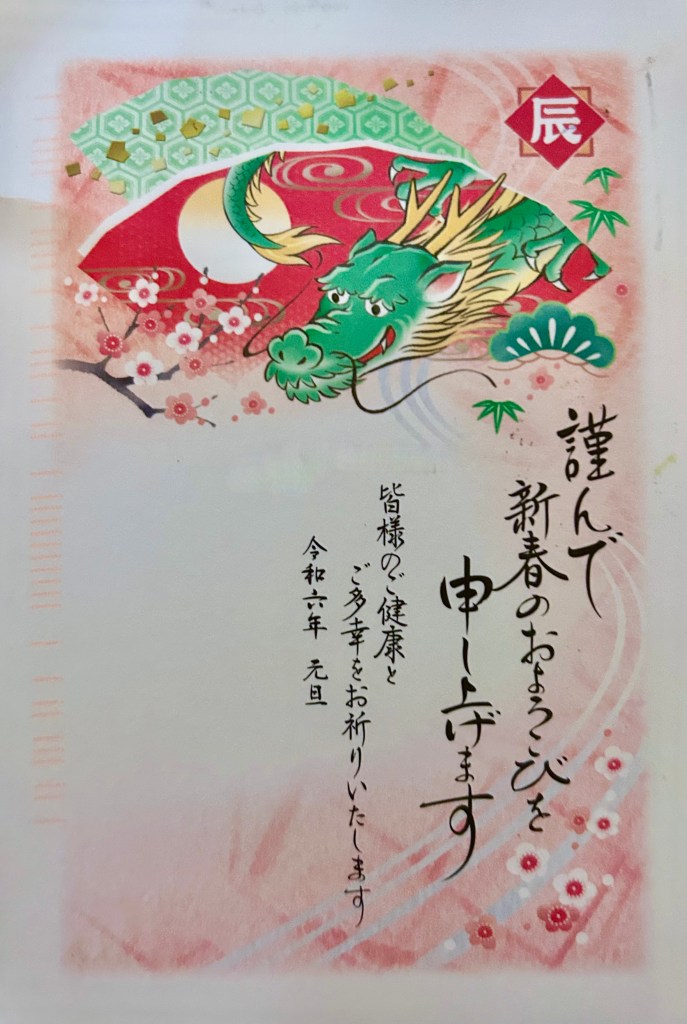 辰
謹んで
新春のおよろこびを
申し上げます
皆様のご健康と
ご多幸をお祈りいたします
令和六年 元旦